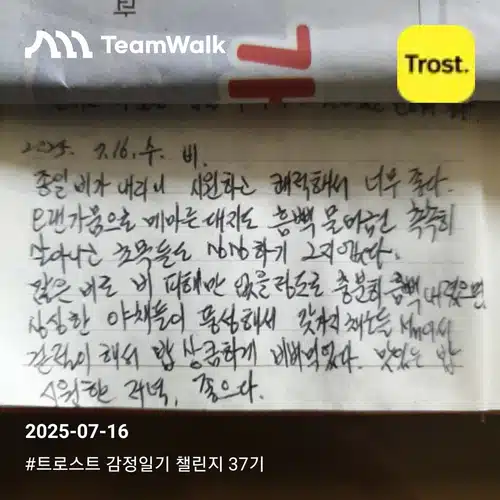 TeamWalk
Trost.
2025. 7.16. 수. 비.
종일 비가 내리니 시원하고 쾌적해서 너무 좋다.
오랜가뭄으로 메마른 대지도 흠뻑 물머금건 촉촉히
살아나고 초목들도 싱싱하기 그지없다.
같은 비로 비 피해만 없을정도로 충분히 흠뻑 내렸으면
싱싱한 야채들이 풍성해서 갖가지 채소들
간편이 해서 밥 상큼하게 비벼먹었다. 맛있는 밥
시원한 저녁, 좋으다.
2025-07-16
#트로스트 감정일기 챌린지 37기